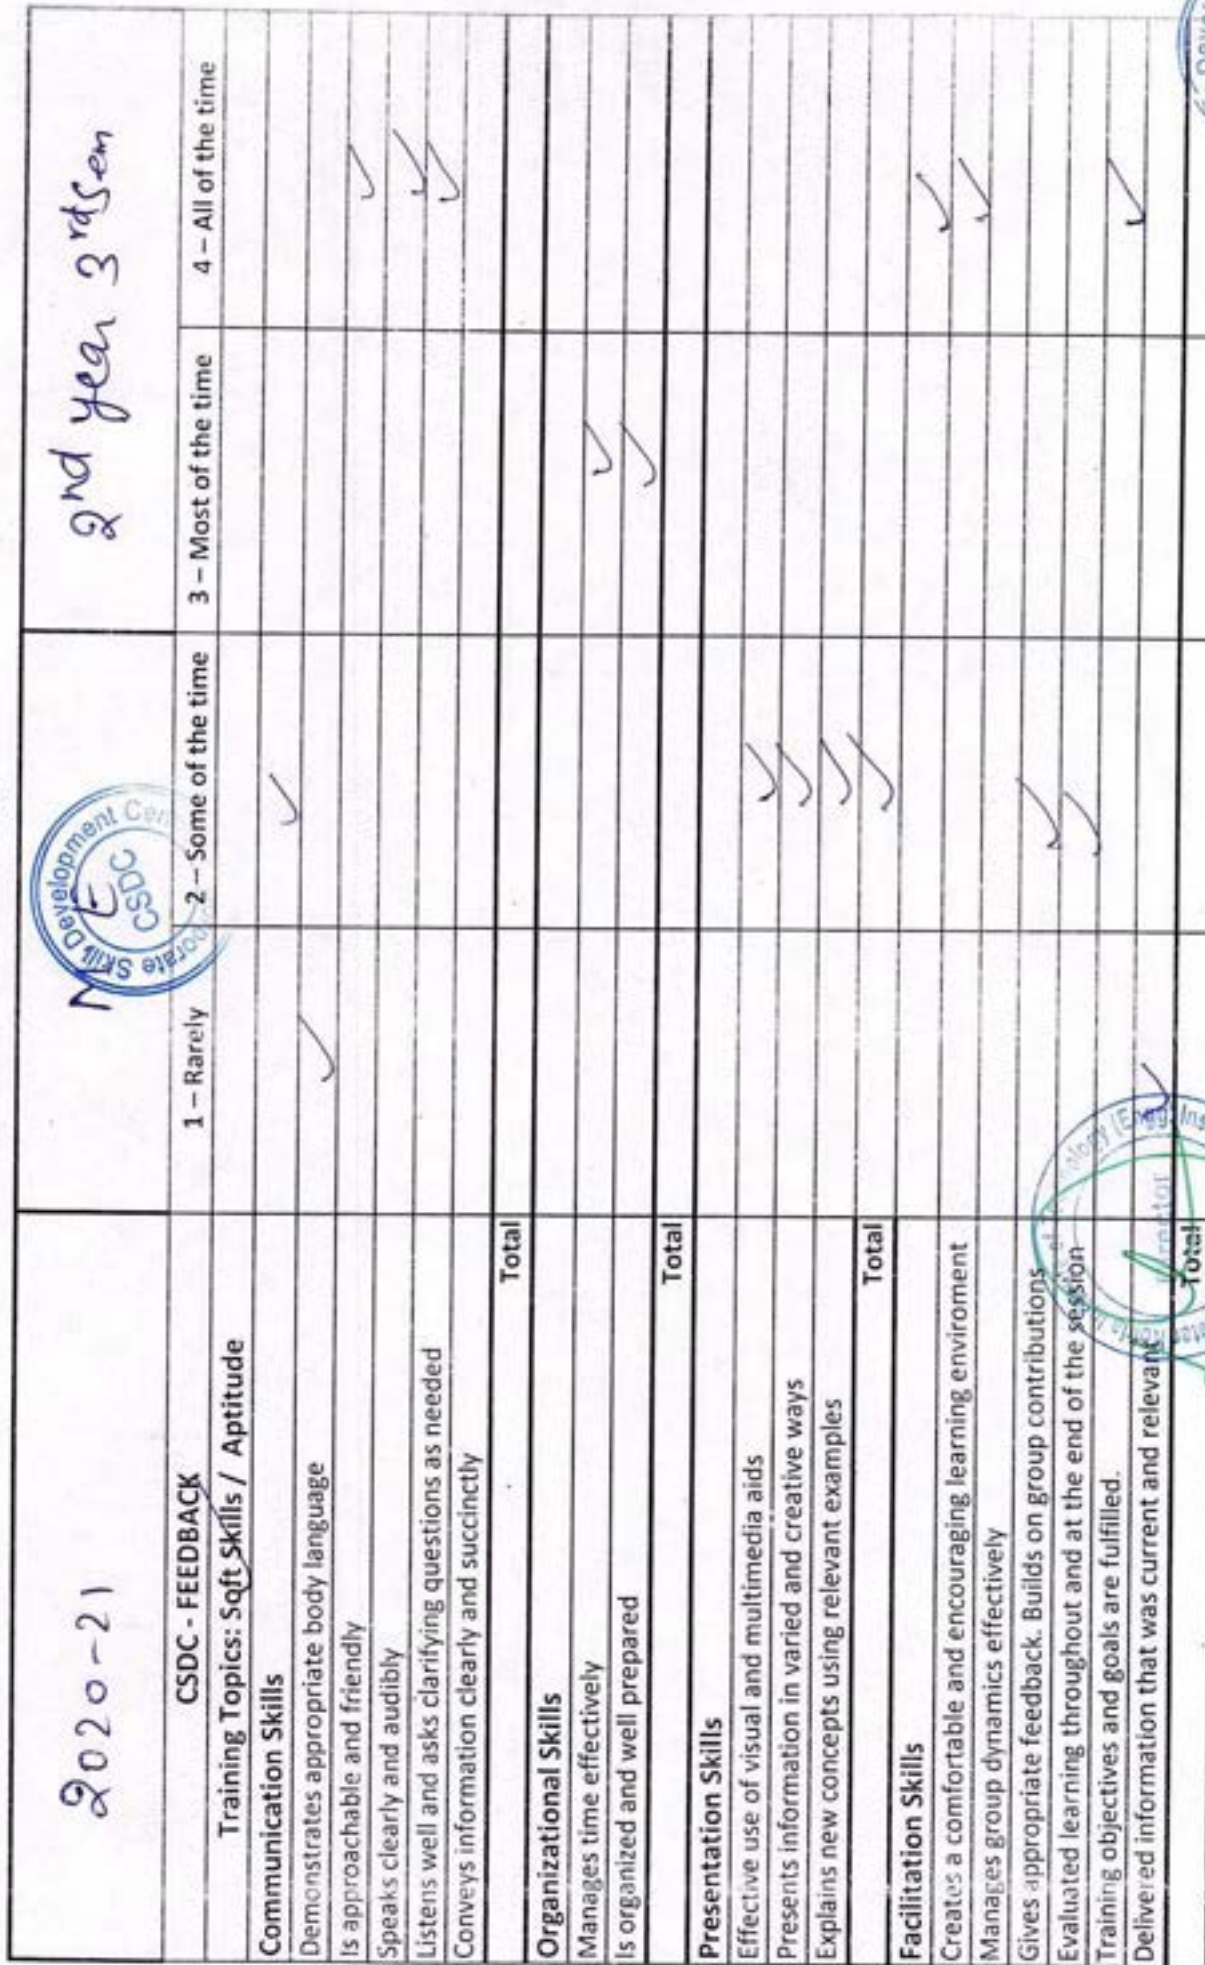 2020-21
M E
2nd year 3rd Sem
Corporate Skills Development Cen
CSDC
CSDC - FEEDBACK
1 – Rarely
2 – Some of the time
3 – Most of the time
4 – All of the time
Training Topics: Soft Skills / Aptitude
Communication Skills
Demonstrates appropriate body language
Is approachable and friendly
Speaks clearly and audibly
Listens well and asks clarifying questions as needed
Conveys information clearly and succinctly
Total
Organizational Skills
Manages time effectively
Is organized and well prepared
Total
Presentation Skills
Effective use of visual and multimedia aids
Presents information in varied and creative ways
Explains new concepts using relevant examples
Total
Facilitation Skills
Creates a comfortable and encouraging learning enviroment
Manages group dynamics effectively
Gives appropriate feedback. Builds on group contributions
Evaluated learning throughout and at the end of the session
Training objectives and goals are fulfilled.
Delivered information that was current and relevant
Total